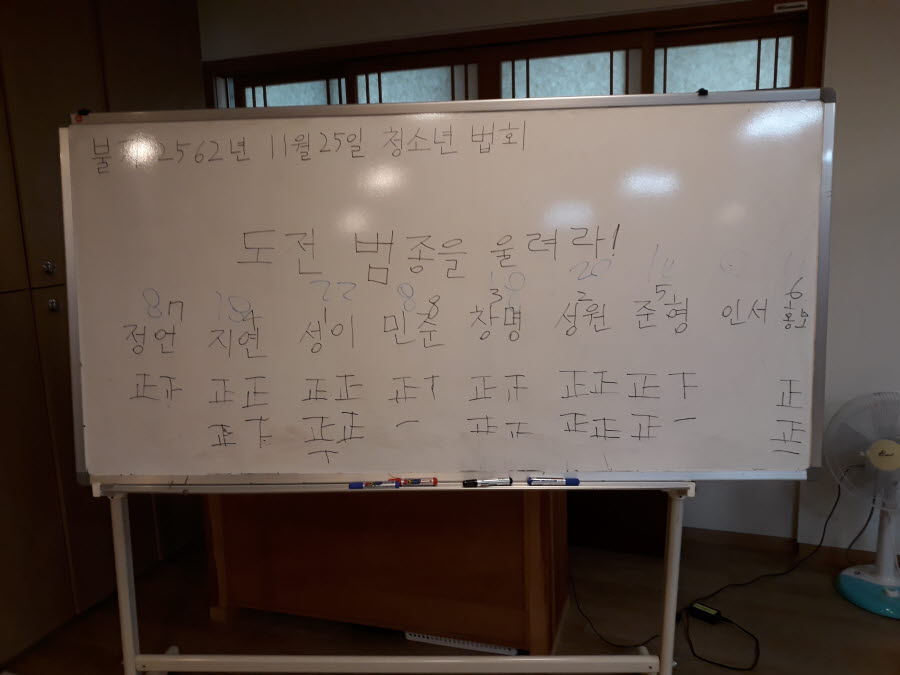 불기 2562년 11월 25일 청소년 법회
도전 범종을 울려라!
8 18 22 8 18 20
7 4 1 8 3 2 5 6
정언 지연 성이 민준 창명 성원 준형 인서
正正 正正 正正 正丅 正正 正正 正丅 正
正下 正正 一 正正 正正 正一 正
丅 一